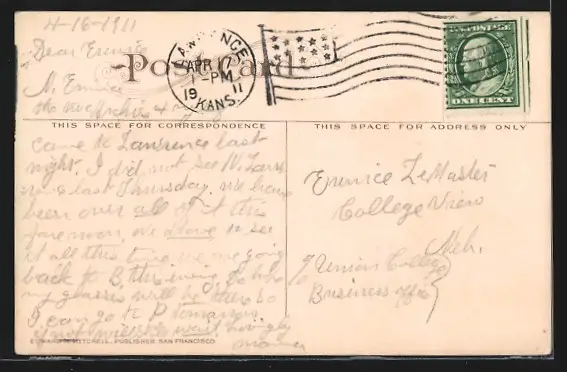 4-16-1911
Dear Eunice
Post Card
LAWRENCE
APR 17
PM
1911
KANS.
U.S. POSTAGE
ONE CENT
THIS SPACE FOR CORRESPONDENCE
THIS SPACE FOR ADDRESS ONLY
came to Lawrence last
night. I did not see N.
last Thursday. we have
been over all of it this
forenoon, we to see
it all this time we are going
back to B. this evening
my glasses will be there so
I can go to P tomorrow.
if not will wait. lovingly
mama
Eunice LeMaster
College View
Neb.
% Union College
Business office
EDWARD H. MITCHELL, PUBLISHER, SAN FRANCISCO